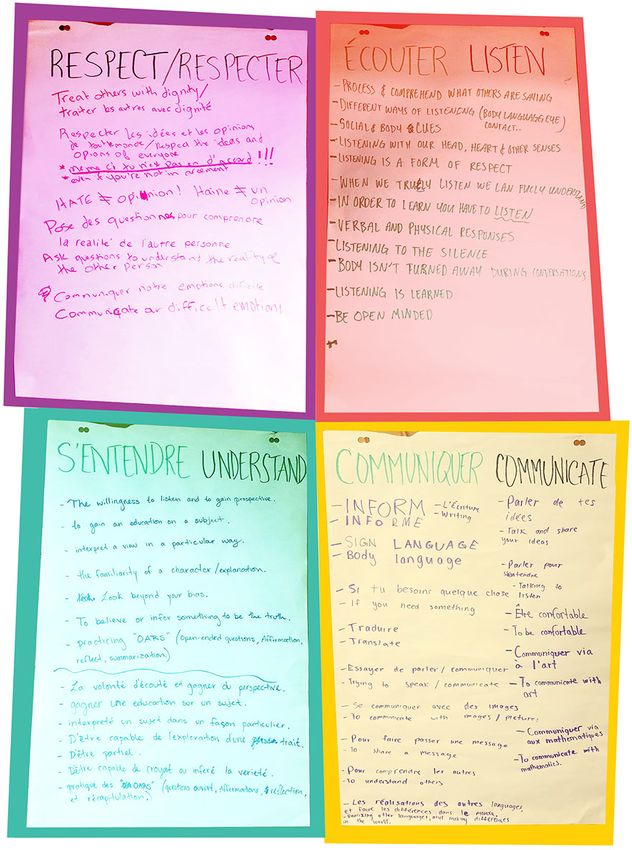 RESPECT/RESPECTER
Treat others with dignity/
traiter les autres avec dignité
Respecter les idées et les opinions
de tout le monde/Respect the ideas and
opions of everyone
*même si tu n'est pas en d'accord !!!
*even if you're not in agreement
HATE ≠ opinion! Haine ≠ un
opinion
Pose des questionnes pour comprendre
la realité de l'autre personne
Ask questions to understand the reality of
the other person
Communiquer notre emotions difficile
Communicate our difficult emotions
ÉCOUTER LISTEN
- PROCESS & COMPREHEND WHAT OTHERS ARE SAYING
- DIFFERENT WAYS OF LISTENING (BODY LANGUAGE EYE)
CONTACT..
- SOCIAL & BODY CUES
- LISTENING WITH OUR HEAD, HEART & OTHER SENSES
- LISTENING IS A FORM OF RESPECT
- WHEN WE TRUELY LISTEN WE CAN FULLY UNDERSTAND
- IN ORDER TO LEARN YOU HAVE TO LISTEN
- VERBAL AND PHYSICAL RESPONSES
- LISTENING TO THE SILENCE
- BODY ISN'T TURNED AWAY DURING CONVERSATIONS
- LISTENING IS LEARNED
- BE OPEN MINDED
S'ENTENDRE UNDERSTAND
- The willingness to listen and to gain perspective.
- to gain an education on a subject.
- interpret a view in a particular way.
- the familiarity of a character/explanation.
- Look beyond your bias.
- To believe or infer something to be the truth.
- practicing "OARS" (Open-ended questions, Affirmation,
reflect, summarization)
- La volonté d'écouté et gagner du perspective.
- gagner une education sur un sujet.
- interpreté un sujet dans un façon particulier.
- D'être capable de l'exploration d'une trait.
- D'être partiel.
- D'être capable de croyat ou inferé la verieté.
- pratique des "OARS" (questions ouvert, Affirmations, reflection,
et récapitulation.)
COMMUNIQUER COMMUNICATE
- INFORM
- INFORME
- L'Écriture
- Writing
- SIGN LANGUAGE
- Body language
- Si tu besoins quelque chose
- If you need something
- Traduire
- Translate
- Essayer de parler / communiquer
- Trying to speak / communicate
- Se communiquer avec des images
- To communicate with images / picture.
- Pour faire passer une message
- To share a message
- Pour comprendre les autres
- To understand others
- Les réalisations des autres languages,
et faire les différences dans le monde.
other languages, and making differences
in the world.
- Parler de tes
idées
- Talk and share
your ideas
- Parler pour
s'entendre
- Talking to
listen
- Être confortable
- To be confortable
- Communiquer via
à l'art
- To communicate with
art
- Communiquer via
aux mathématiques
- To communicate with
mathematics.